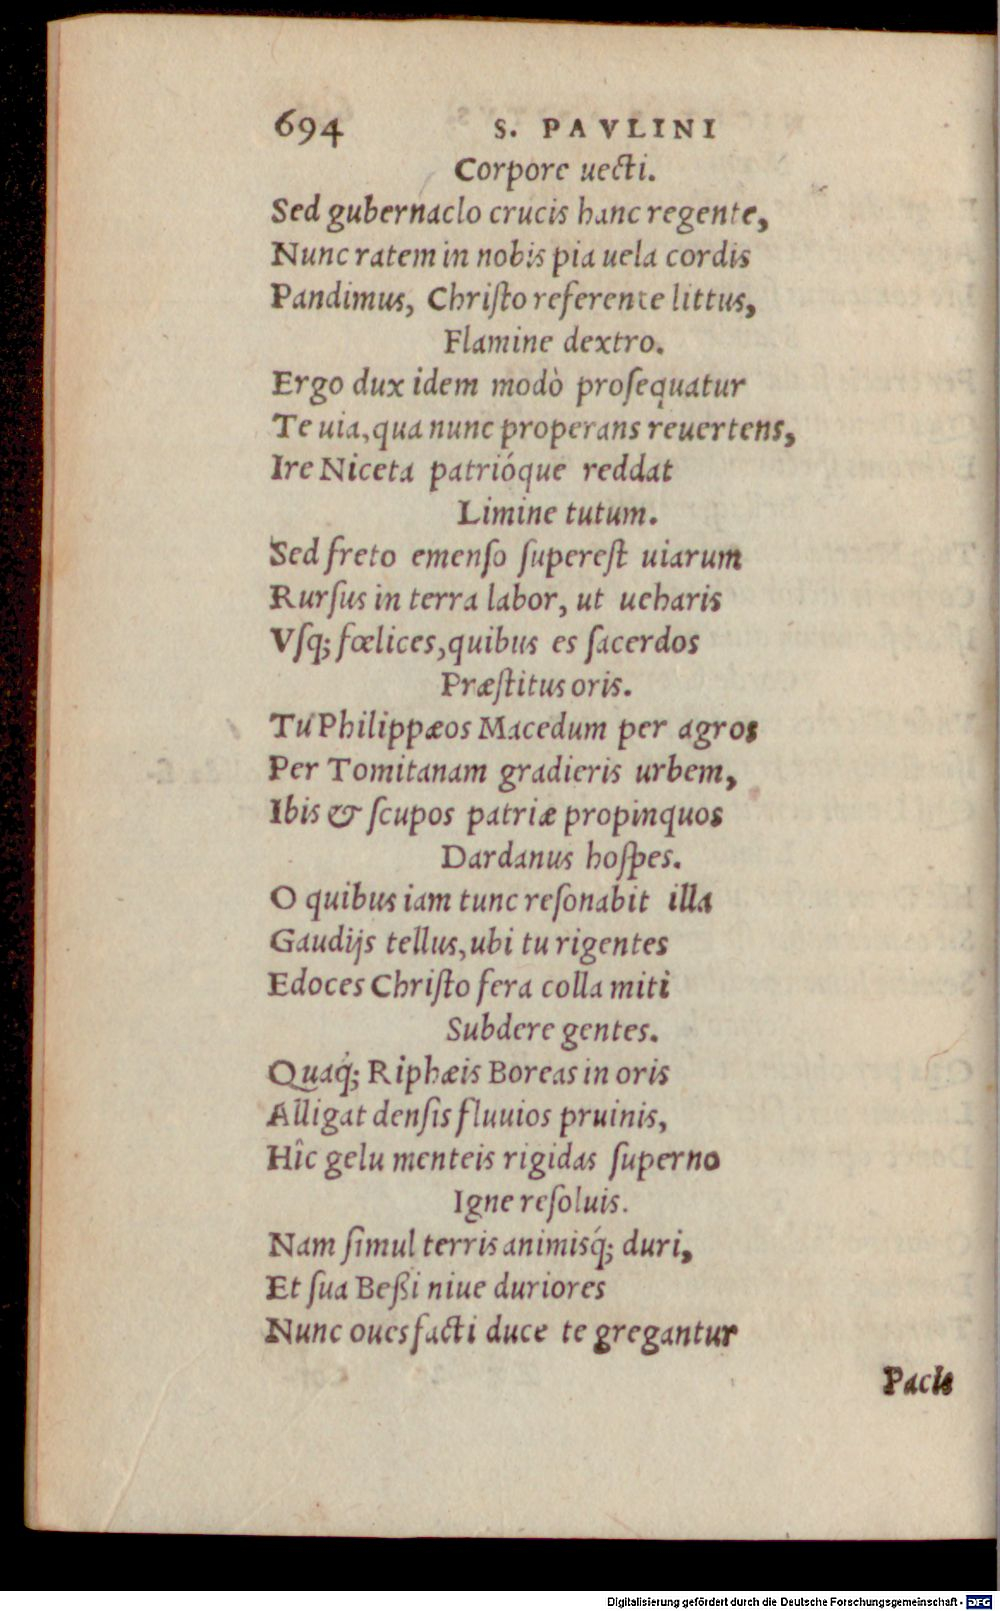 694 S. PAVLINI
Corpore uecti.
Sed gubernaclo crucis hanc regente,
Nunc ratem in nobis pia uela cordis
Pandimus, Chriſto referente littus,
Flamine dextro.
Ergo dux idem modò proſequatur
Te uia, qua nunc properans reuertens,
Ire Niceta patrióque reddat
Limine tutum.
Sed freto emenſo ſupereſt uiarum
Rurſus in terra labor, ut ueharis
Vſq; fœlices, quibus es ſacerdos
Præſtitus oris.
Tu Philippæos Macedum per agros
Per Tomitanam gradieris urbem,
Ibis & ſcupos patriæ propinquos
Dardanus hoſpes.
O quibus iam tunc reſonabit illa
Gaudijs tellus, ubi tu rigentes
Edoces Chriſto fera colla miti
Subdere gentes.
Quaq́; Riphæis Boreas in oris
Alligat denſis fluuios pruinis,
Hîc gelu menteis rigidas ſuperno
Igne reſoluis.
Nam ſimul terris animisq́; duri,
Et ſua Beßi niue duriores
Nunc oues facti duce te gregantur
Pacis
Digitalisierung gefördert durch die Deutsche Forschungsgemeinschaft - DFG